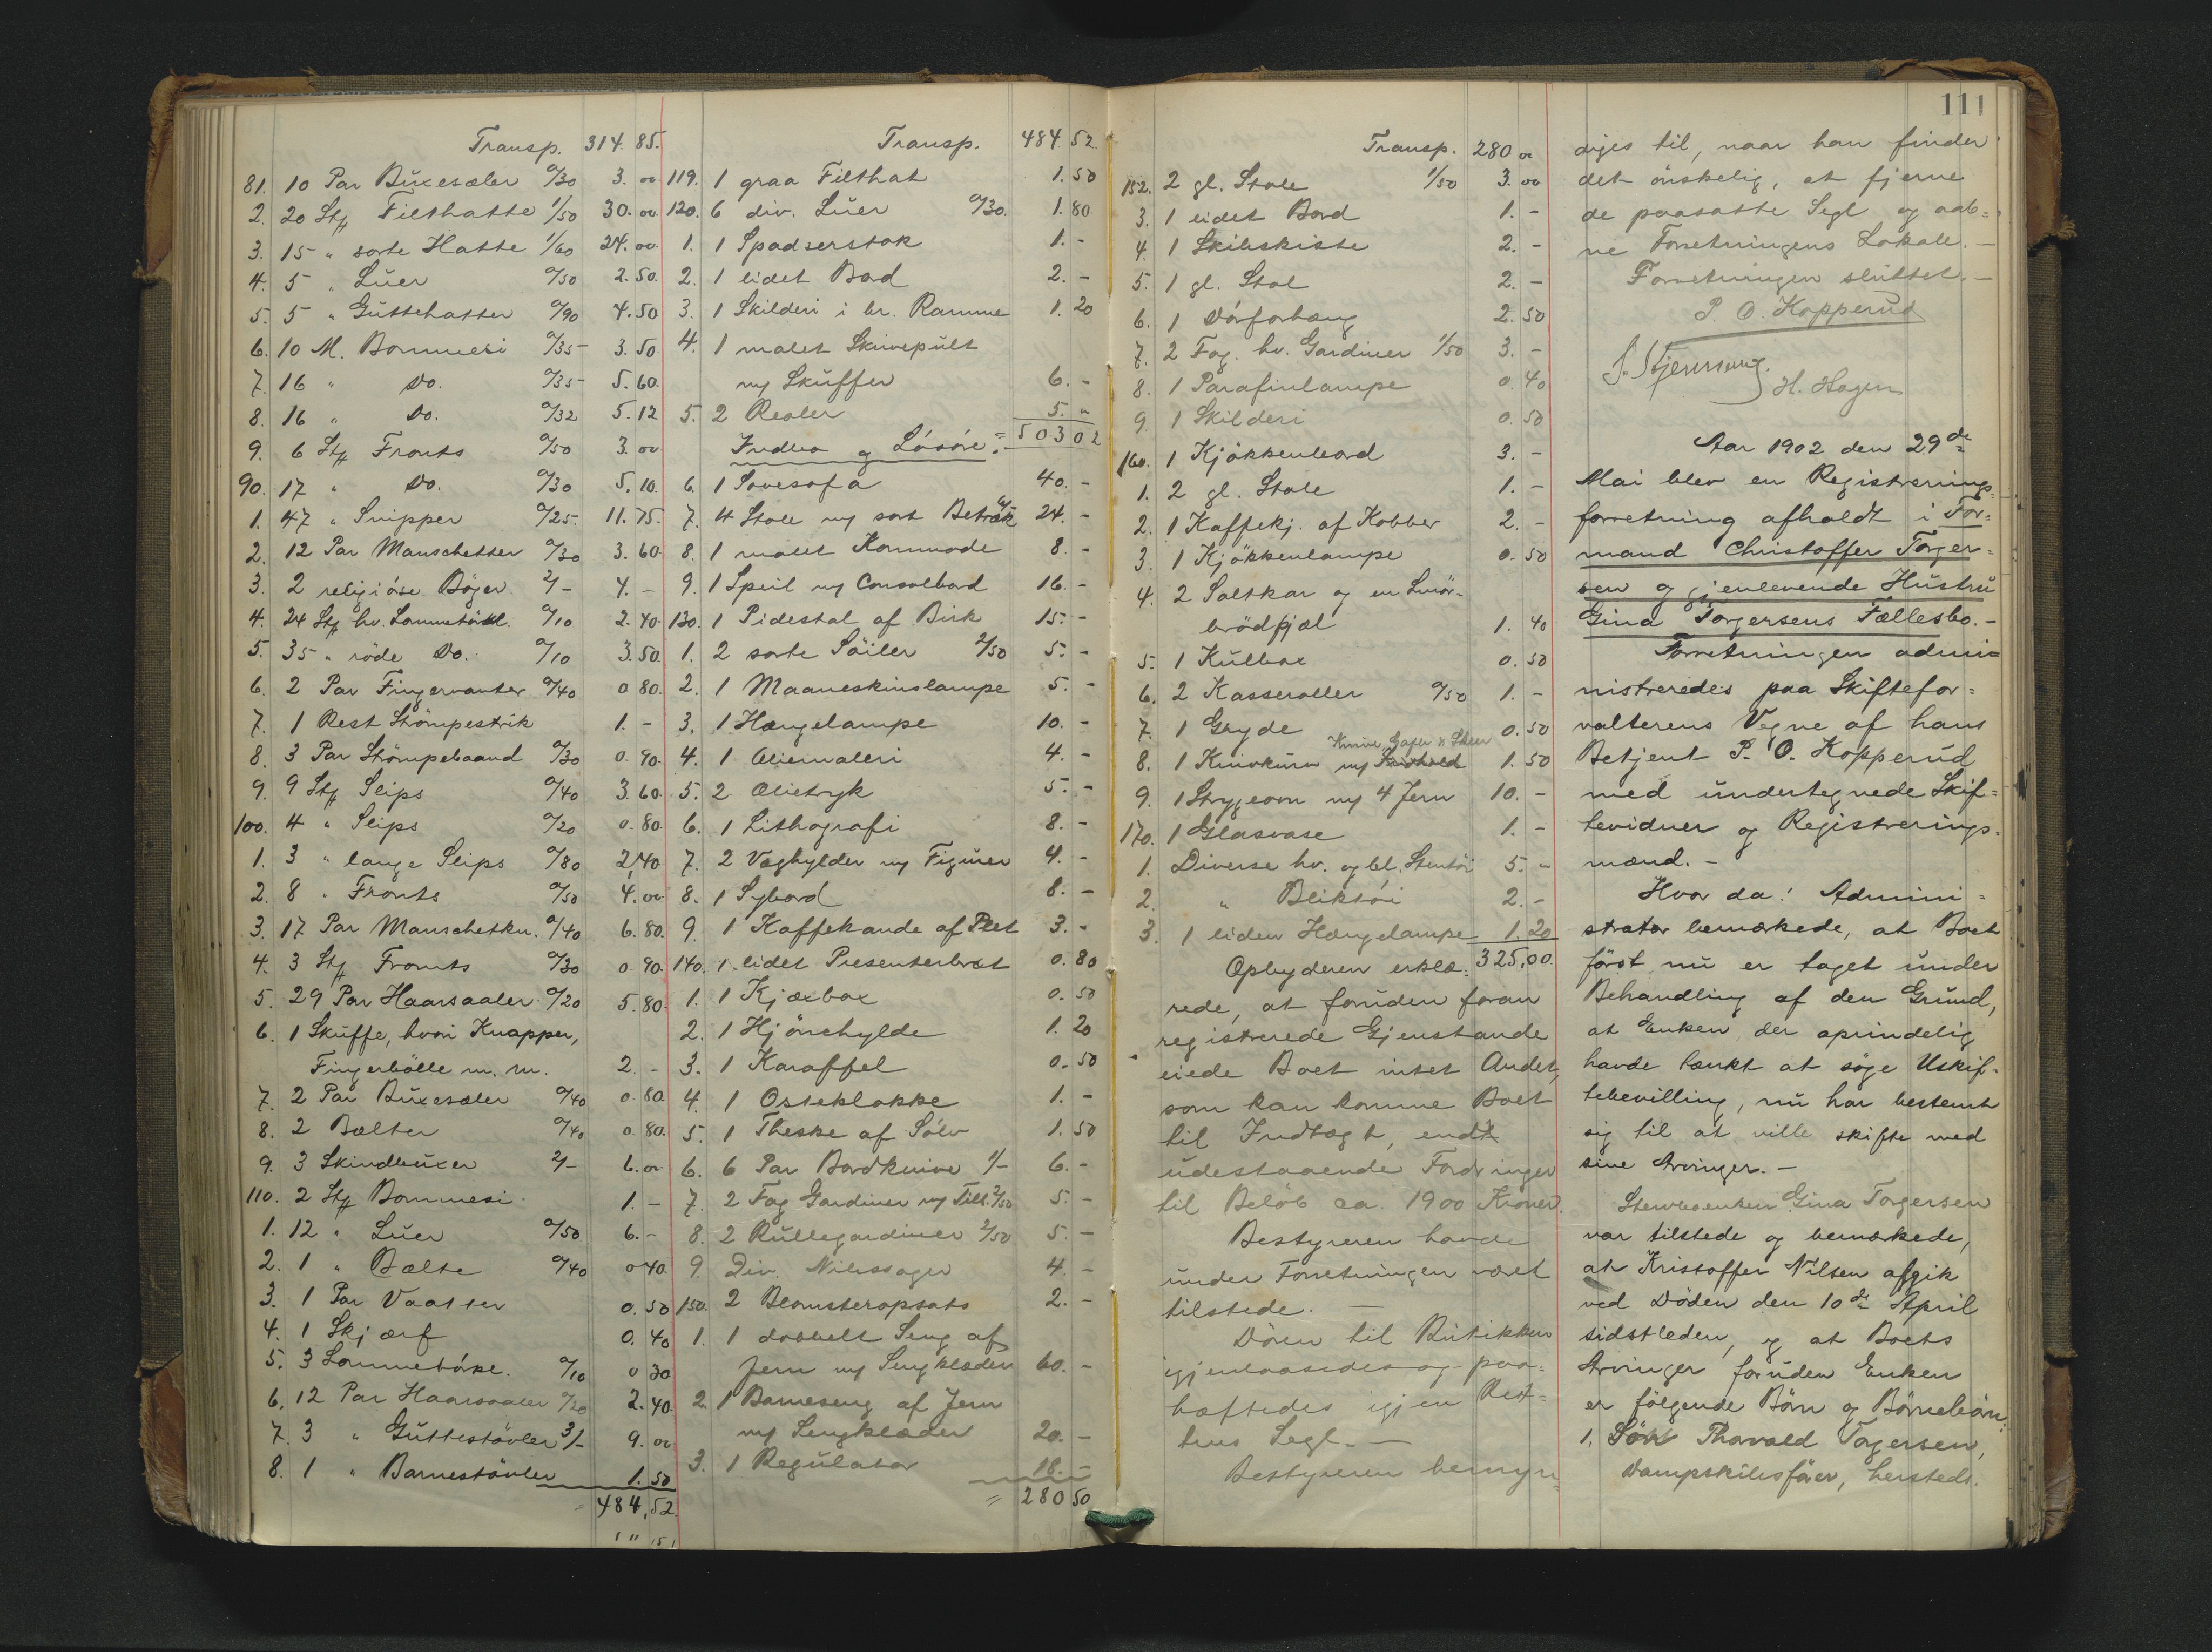 Transp. 314. 85.
81. 10 Par Buxesæler a/30 3. 00
2. 20 Stk Filthatte 1/50 30. 00
3. 15 " sorte Hatte 1/60 24. 00
4. 5 " Luer a/50 2. 50
5. 5 " Guttehatter a/90 4. 50
6. 10 M. Bommesi a/35 3. 50
7. 16 " Do. a/35 5. 60
8. 16 " Do. a/32 5. 12
9. 6 Stk Fronts a/50 3. 00
90. 17 " Do. a/30 5. 10
1. 47 " Snipper a/25 11. 75
2. 12 Par Manschetter a/30 3. 60
3. 2 religiöse Bøger 2/- 4. -
4. 24 Stk hv. Lommetökl. a/10 2. 40
5. 35 " röde Do. a/10 3. 50
6. 2 Par Fingervanter a/40 0 80
7. 1 Rest Strömpestrik 1. -
8. 3 Par Strömpebaand a/30 0. 90
9. 9 Stk Slips a/40 3. 60
100. 4 " Slips a/20 0. 80
1. 3 " lange Slips a/80 2, 40
2. 8 " Fronts a/50 4. 00
3. 17 Par Manschetkn. a/40 6. 80
4. 3 Stk Fronts a/30 0. 90
5. 29 Par Haarsaaler a/20 5. 80
6. 1 Skuffe, hvori Knapper,
Fingerbölle m. m. 2. -
7. 2 Par Buxesæler a/40 0. 80
8. 2 Bælter a/40 0. 80
9. 3 Skindbuxer 2/- 6. 00
110. 2 Stk Bommesi 1. -
1. 12 " Luer a/50 6. -
2. 1 " Bælte a/40 0 40
3. 1 Par Vaatter 0. 50
4. 1 Skjærf 0. 40
5. 3 Lommetöke. a/10 0 30
6. 12 Par Haarsaaler a/20 2. 40
7. 3 " Guttestövler 3/- 9. 00
8. 1 " Barnestövler 1. 50
= 484, 52.
Transp. 484 52
119. 1 graa Filthat 1. 50
120. 6 div. Luer a/30. 1. 80
1. 1 Spadserstok 1. -
2. 1 lidet Bord 2. -
3. 1 Skilderi i br. Ramme 1. 20
4. 1 malet Skrivepult
m/ Skuffer 6. -
5. 2 Reoler 5. "
Indbo og Lösöre. = 503 02
6. 1 Sovesofa 40. -
7. 4 Stole m/ sort Betræk 6/- 24. -
8. 1 malet Kommode 8. -
9. 1 Speil m/ Consolbord 16. -
130. 1 Pidestal af Birk 15. -
1. 2 sorte Söiler 2/50 5. -
2. 1 Maaneskinslampe 5. -
3. 1 Hængelampe 10. -
4. 1 Oliemaleri 4. -
5. 2 Olietryk 5. -
6. 1 Lithografi 8. -
7. 2 Væghylder m/ Figurer 4. -
8. 1 Sybord 8. -
9. 1 Kaffekande af Plet 3. -
140. 1 lidet Presenterbræt 0. 80
1. 1 Kjæxbox 0. 50
2. 1 Hjörnehylde 1. 20
3. 1 Karaffel 0. 50
4. 1 Osteklokke 1. -
5. 1 Theske af Sölv 1. 50
6. 6 Par Bordknive 1/- 6. -
7. 2 Fag Gardiner m/ Tilb. 2/50 5. -
8. 2 Rullegardiner 2/50 5. -
9. Div. Nilssager 4. -
150. 2 Blomsteropsats 2. -
1. 1 dobbelt Seng af
Jern m/ Sengklæder 60. -
2. 1 Barneseng af Jern
m/ Sengklæder 20. -
3. 1 Regulator 18. -
= 280 50
111
Transp. 280 00
152. 2 gl. Stole 1/50 3. 00
3. 1 lidet Bord 1. -
4. 1 Skibskiste 2. -
5. 1 gl. Stol 2. -
6. 1 Dörforhæng 2. 50
7. 2 Fag. hv. Gardiner 1/50 3. -
8. 1 Parafinlampe 0. 40
9. 1 Skilderi 0. 50
160. 1 Kjökkenbord 3. -
1. 2 gl. Stole 1. -
2. 1 Kaffekj. af Kobber 2. -
3. 1 Kjökkenlampe 0. 50
4. 2 Saltkar og en Smör-
brödfjæl 1. 40
5. 1 Kulbox 0. 50
6. 2 Kasseroller a/50 1. -
7. 1 Gryde 0. 50
Knive, Gafler & Skeer
8. 1 Knivkurv m/ 1. 50
9. 1 Strygeovn m/ 4 Jern 10. -
170. 1 Glasvase 1. -
1. Diverse hv. og bl. Stentöi 5. -
2. " Bliktöi 2. -
3. 1 liden Hængelampe 1. 20
325,00
Opbyderen erklæ-
rede, at foruden foran
registrerede Gjenstande
eiede Boet intet Andet,
som kan komme Boet
til Indtægt, endt
udestaaende Fordringer
til Beløb ca. 1900 Kroner.
Bestyreren havde
under Forretningen været
tilstede. -
Dören til Butikken
igjenlaasedes og paa-
hæftedes igjen Ret-
tens Segl. -
Bestyreren bemyn-
diges til, naar han finder
det önskelig, at fjerne
de paasatte Segl og aab-
ne Forretningens Lokale. -
Forretningen sluttet. -
P. O. Kopperud
H. Hagen
Aar 1902 den 29de
Mai blev en Registrerings-
forretning afholdt i For-
mand Christoffer Torger-
sen og gjenlevende Hustru
Gina Torgersens Fællesbo. -
Forretningen admi-
nistreredes paa Skiftefor-
valterens Vegne af hans
Betjent P. O. Kopperud
med undertegnede Skif-
tevidner og Registrerings-
mænd. -
Hvor da! Admini-
strator bemærkede, at Boet
först nu er taget under
Behandling af den Grund,
at Enken, der oprindelig
havde tænkt at söge Uskif-
tebevilling, nu har bestemt
sig til at ville skifte med
sine Arvinger. -
Stervboenken Gina Torgersen
var tilstede og bemærkede,
at Kristoffer Nilsen afgik
ved Döden den 10de April
sidstleden, og at Boets
Arvinger foruden Enken
er fölgende Börn og Börnebörn:
1. Sön Thorvald Torgersen,
Dampskibsförer, hersteds.